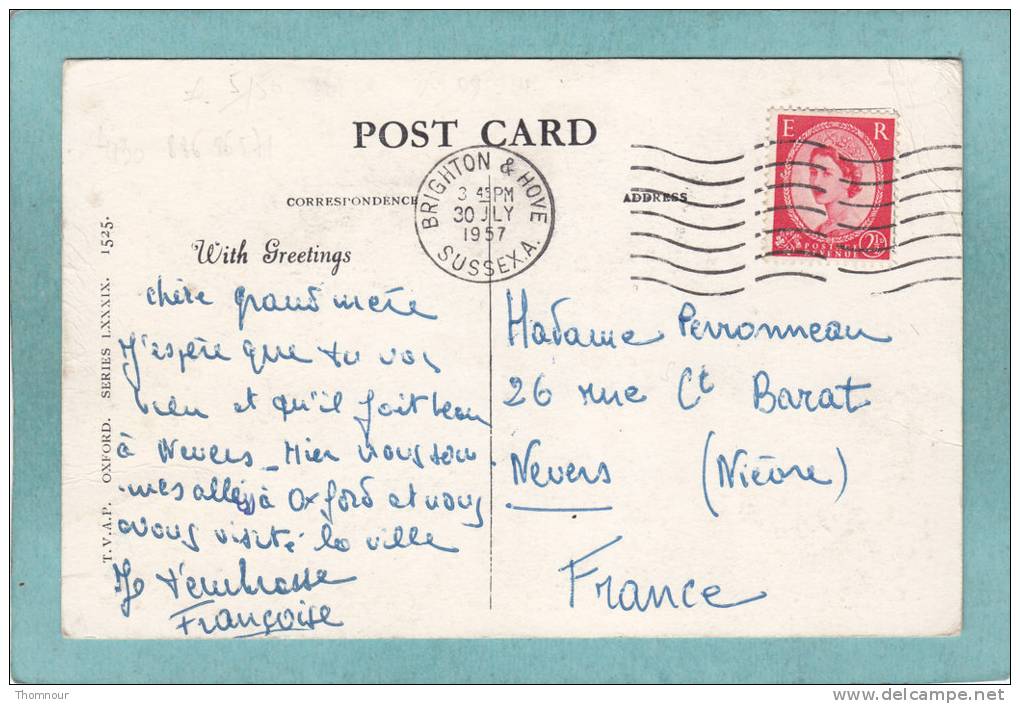 POST CARD
CORRESPONDENCE
ADDRESS
BRIGHTON & HOVE
3 45 PM
30 JLY
1957
SUSSEX.A.
E R
POSTAGE
REVENUE
2½D
With Greetings
T.V.A.P. OXFORD. SERIES LXXXIX. 1525.
chère grand mère
J'espère que tu vas
bien et qu'il fait beau
à Nevers _ Hier nous som
mes allés à Oxford et nous
avons visité la ville
Je t'embrasse
Françoise
Madame Perronneau
26 rue Ct Barat
Nevers (Nièvre)
France
Thomnour
delcampe.net